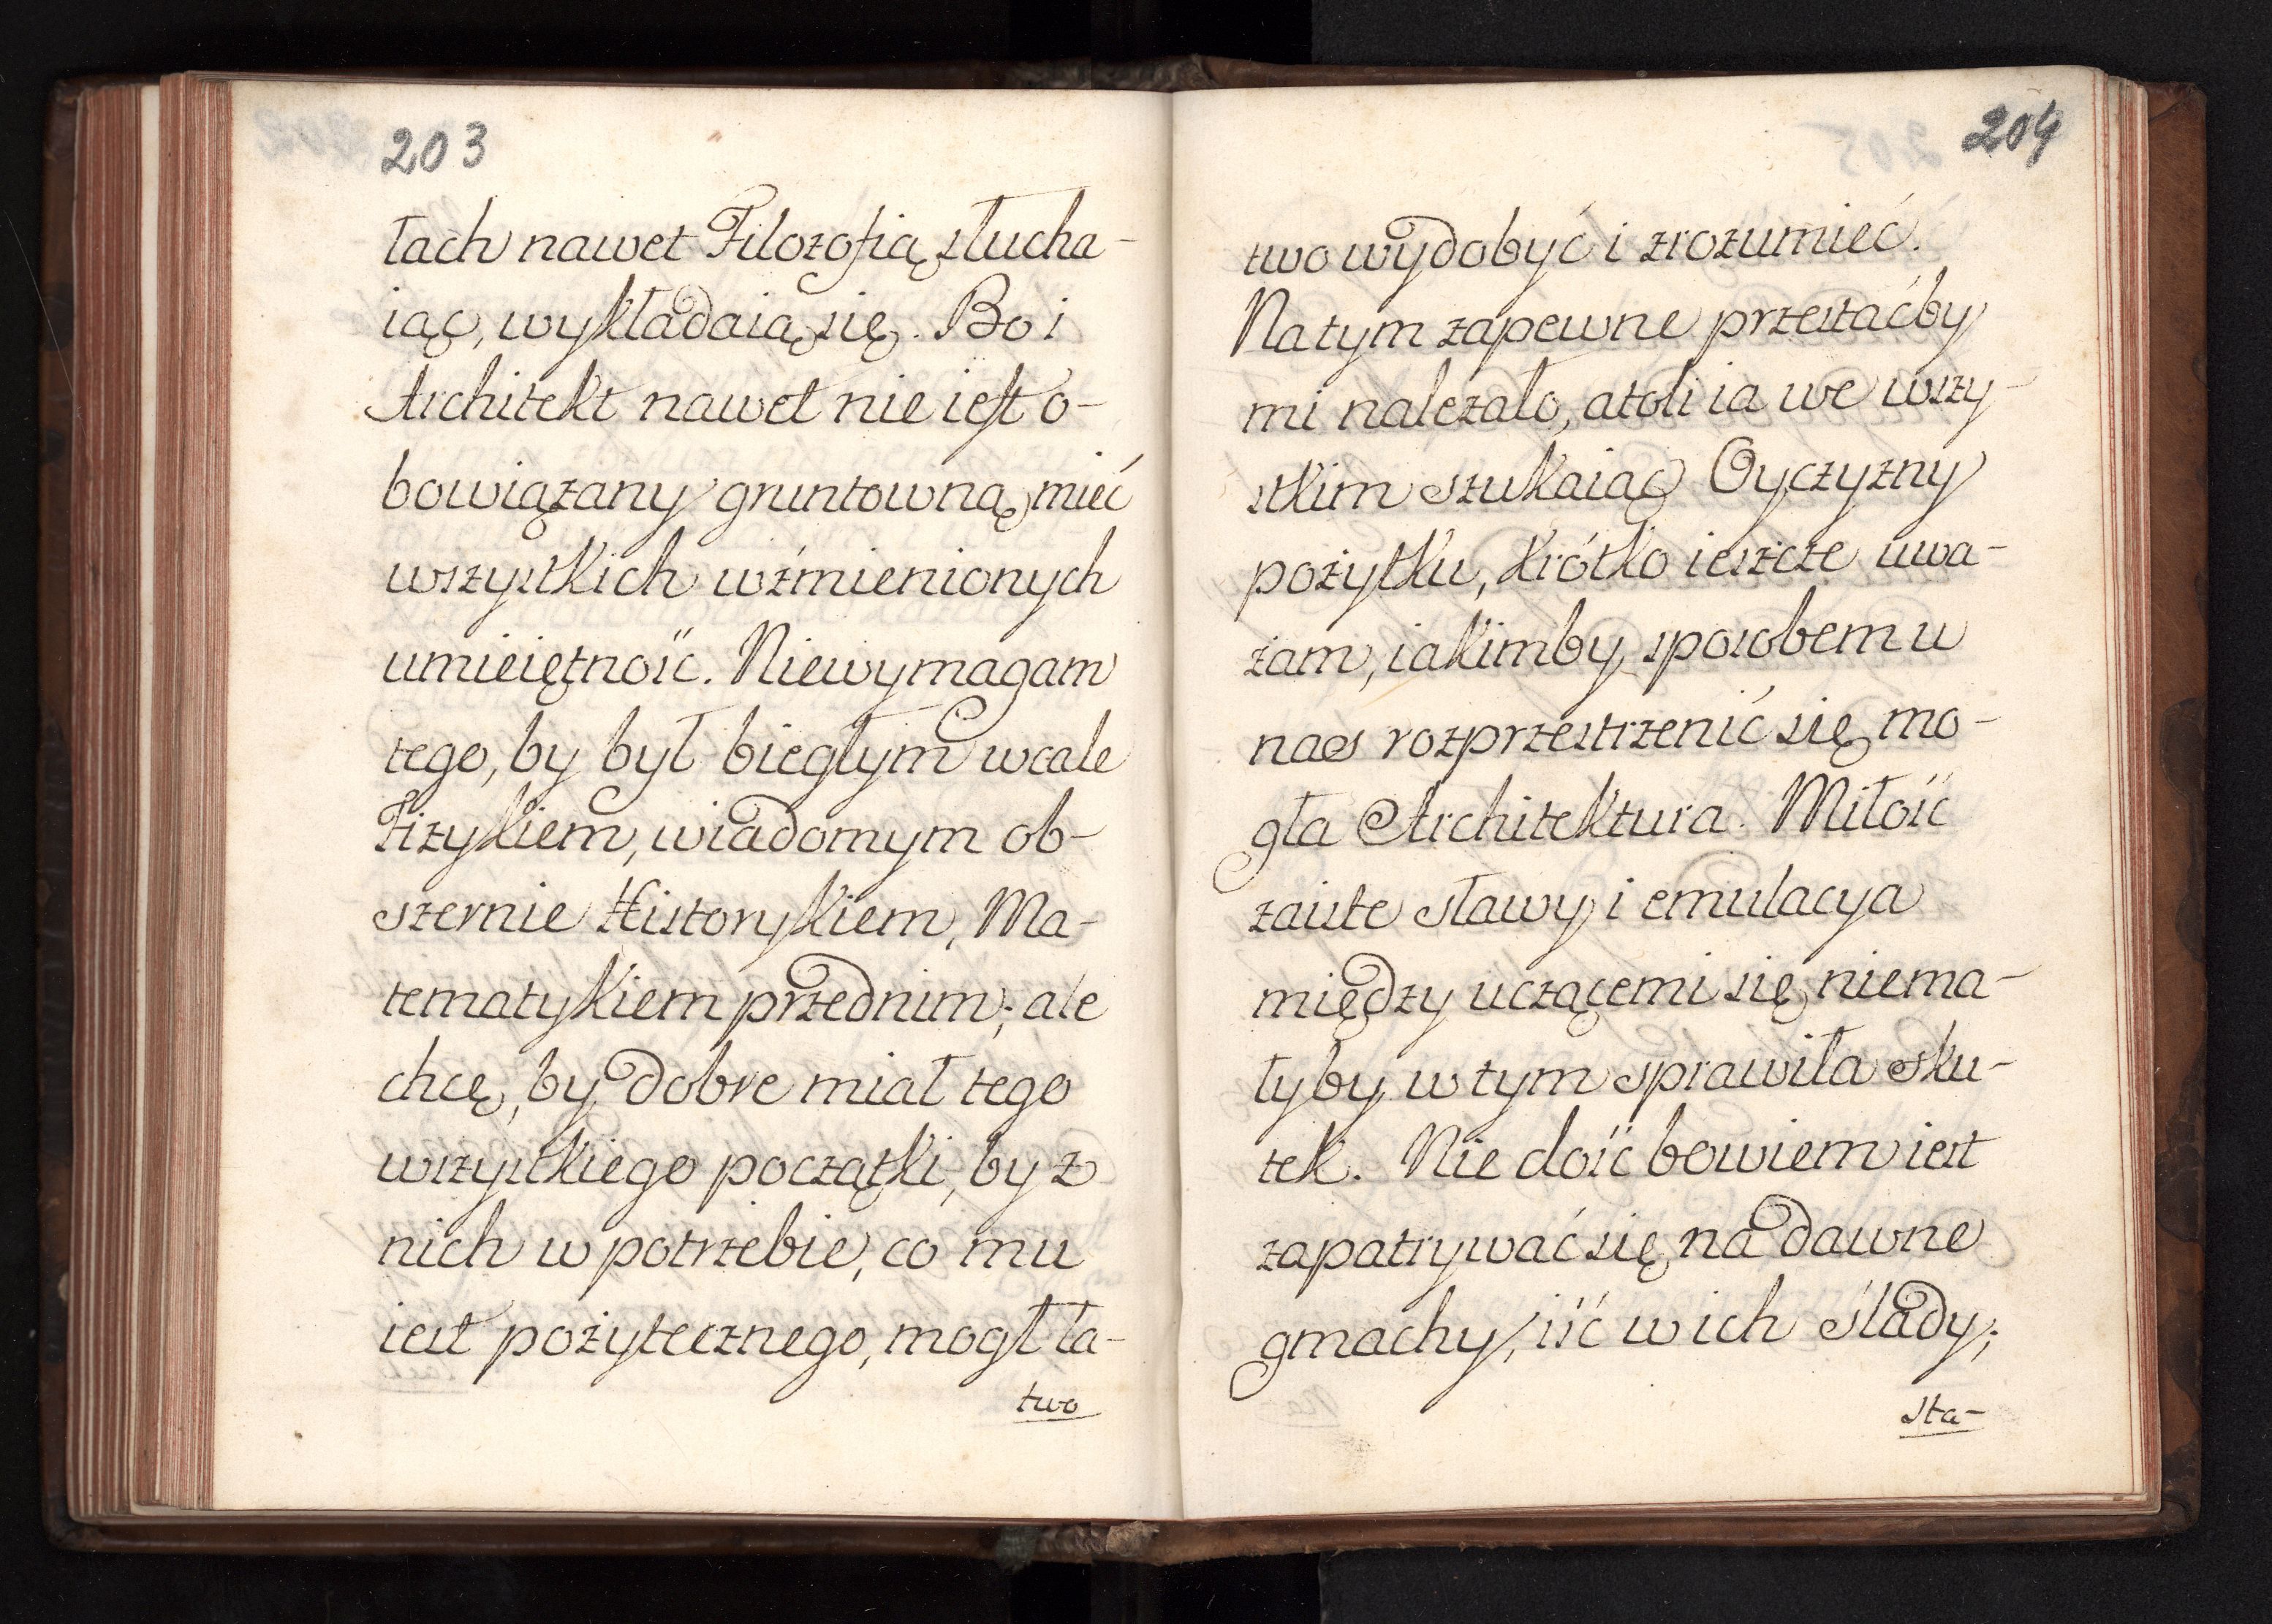 203
łach nawet Filozofią słucha-
iąc, wykładaią się. Bo i
Architekt nawet nie iest o-
bowiązany gruntowną mieć
wszystkich wźmienionych
umieiętność. Niewymagam
tego, by był biegłym wcale
Fizykiem, wiadomym ob-
szernie Historykiem, Ma-
tematykiem przednim; ale
chcę, by dobre miał tego
wszystkiego początki, by z
nich w potrzebie, co mu
iest pożytecznego, mogł ła-
two
204
two wydobyć i zrozumieć.
Na tym zapewne przestaćby
mi należało, atoli ia we wszy-
stkim szukaiąc Oyczyzny
pożytku, krótko ieszcze uwa-
żam, iakimby sposobem u
nas rozprzestrzenić się mo-
gła Architektura. Miłość
zaiste sławy i emulacya
między uczącemi się niema-
łyby w tym sprawiła sku-
tek. Nie dość bowiem iest
zapatrywać się na dawne
gmachy, iść w ich ślady;
sta-